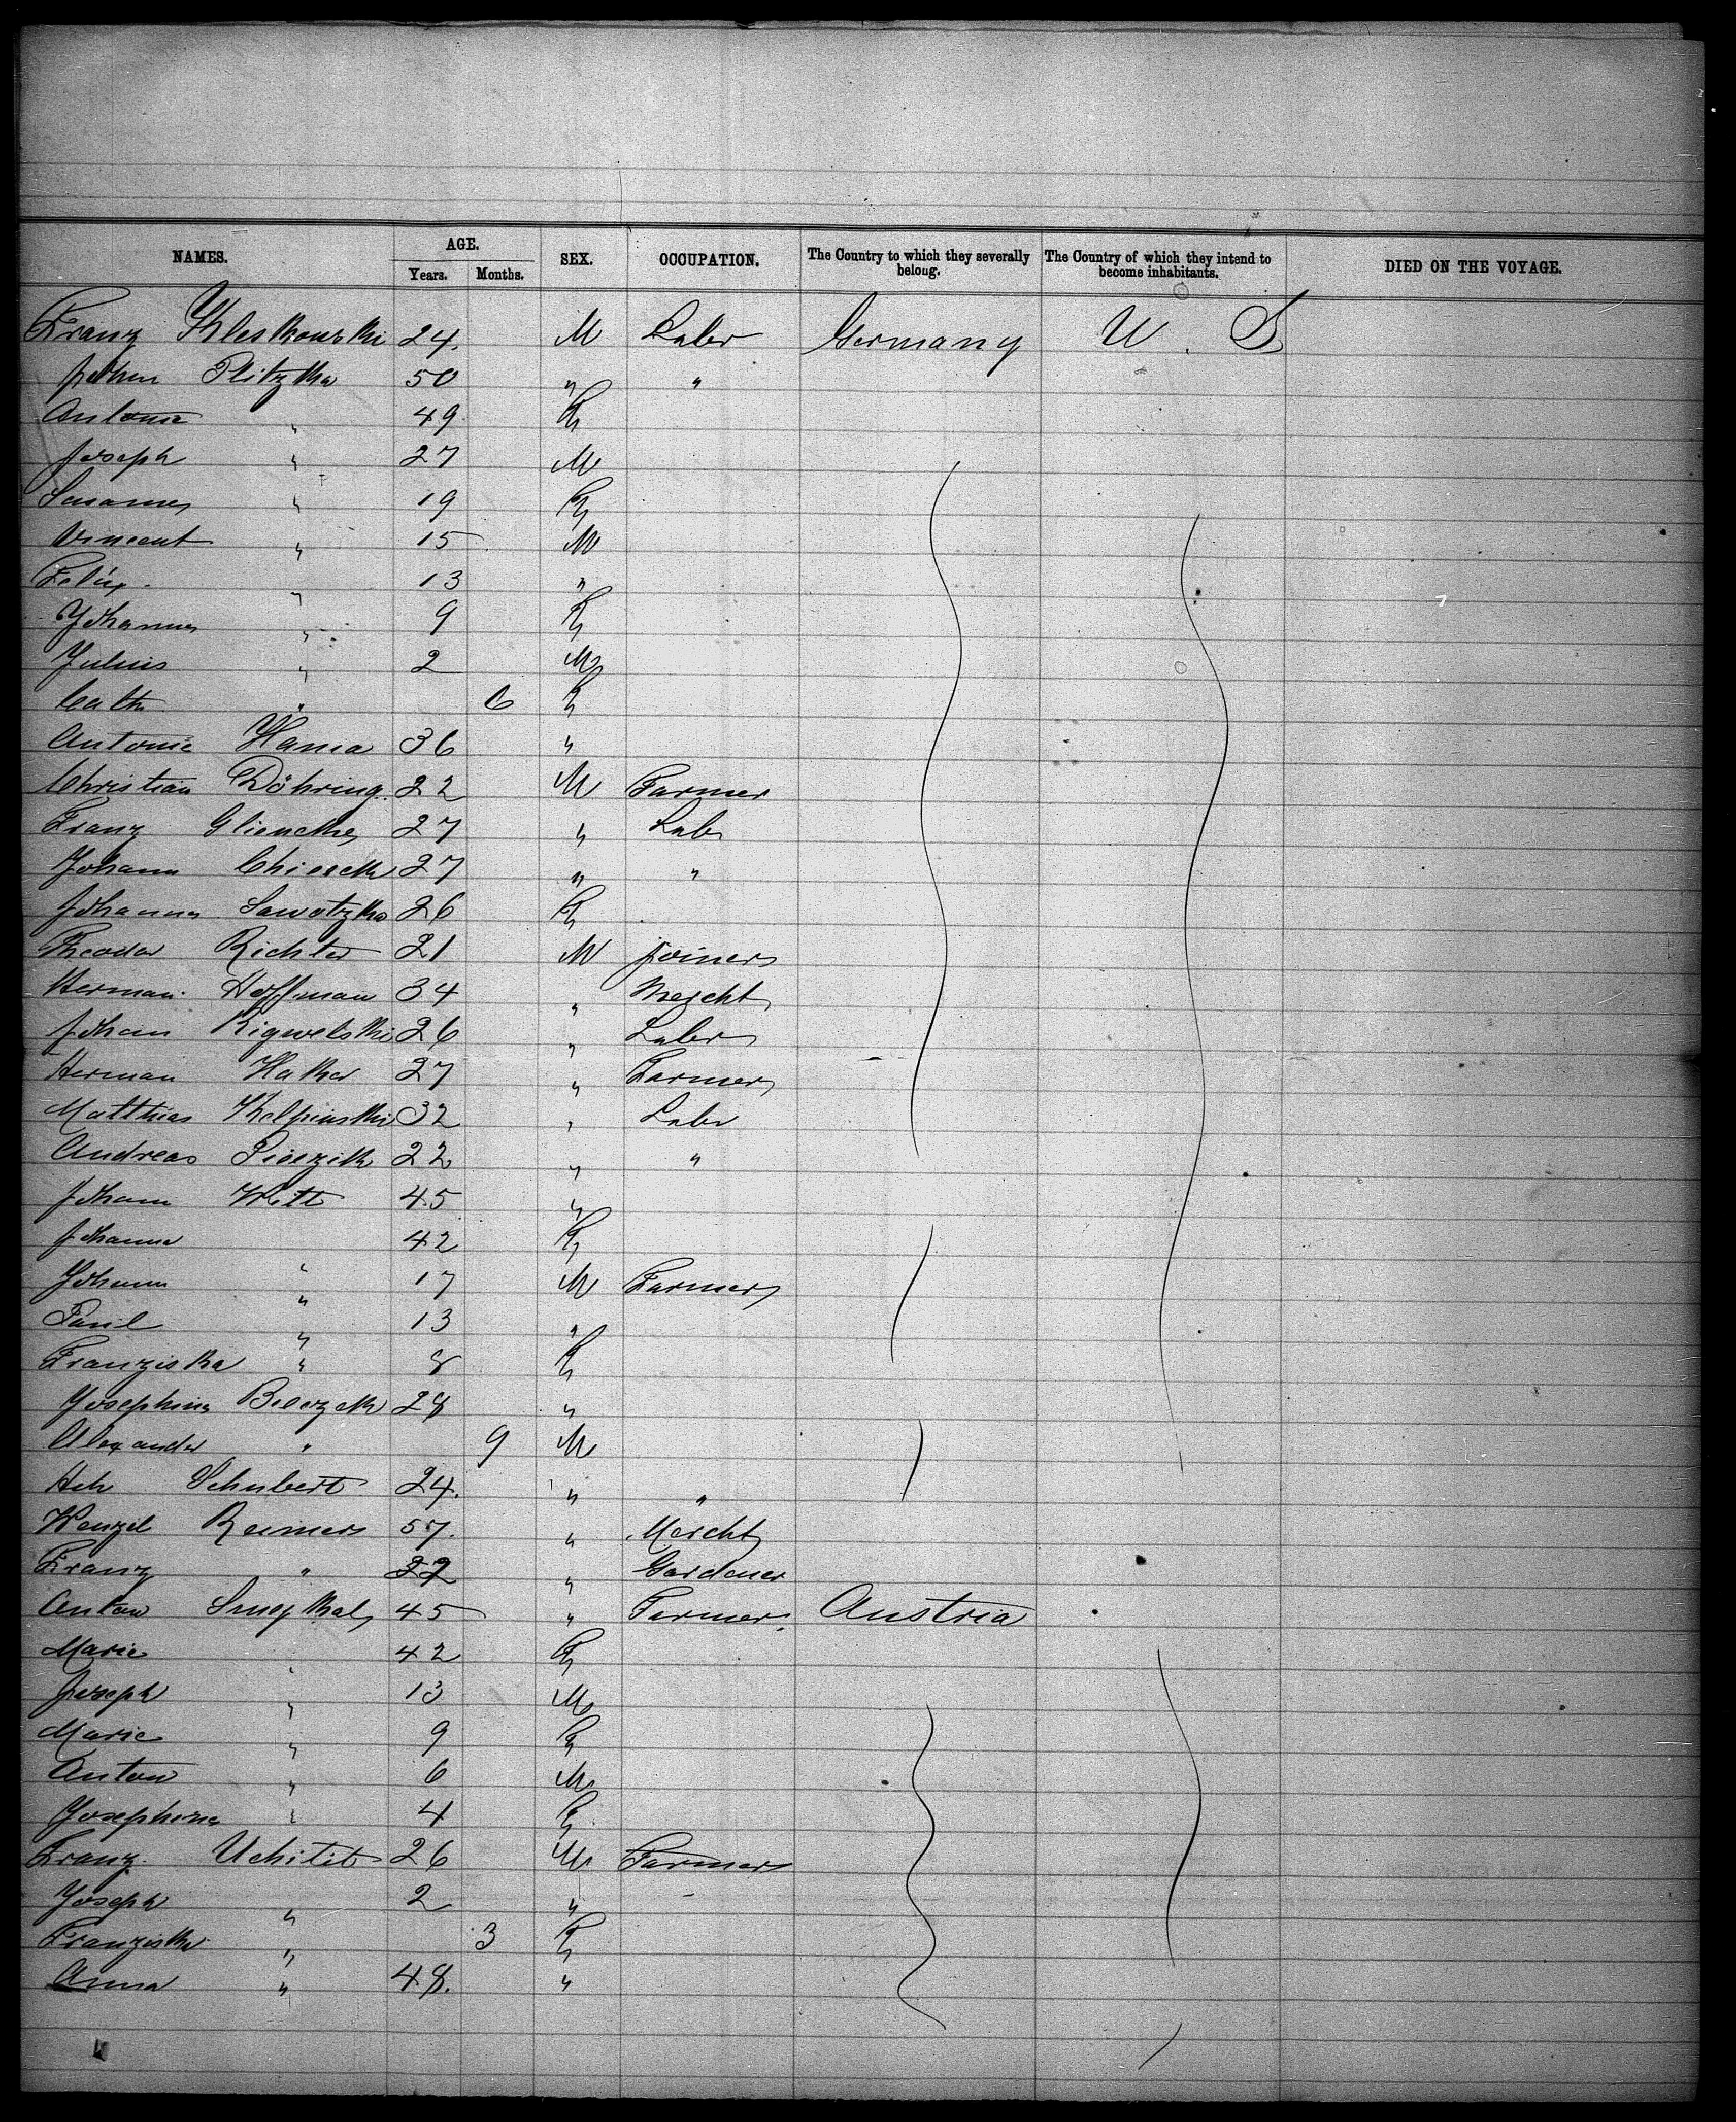 NAMES. AGE. SEX. OCCUPATION. The Country to which they severally belong. The Country of which they intend to become inhabitants. DIED ON THE VOYAGE.
Years. Months.
Franz 24. M Labr Germany U. S
Johan Plitzka 50 " "
Antonie " 49 F
Joseph " 27 M
Susanna " 19 F
Vincent " 15 M
Felix " 13 "
Johanna " 9 F
Julius " 2 M
Cath " 6 F
Antonie Hania 36 "
Christian Döhring 22 M Farmer
Franz Gliencke 27 " Labr
Johann 27 " "
Johanna Sawatzka 26 F
Theodor Richter 21 M joiner
Herman Hoffman 34 " Mercht
Johan 26 " Labr
Herman Haker 27 " Farmer
Matthias Kelpinski 32 " Labr
Andreas 22 " "
Johann Witt 45 "
Johanna " 42 F
Johann " 17 M Farmer
Paul " 13 "
Franziska " 8 F
Josephina 28 "
Alexander " 9 M
Hch Schubert 24. " "
Wenzel Reimers 57. " Mercht
Franz " 22 " Gardener
Anton 45 " Farmer Austria
Marie " 42 F
Joseph " 13 M
Marie " 9 F
Anton " 6 M
Josephina " 4 F
Franz Uchitit 26 M Farmer
Joseph " 2 "
Franziska " 3 F
Anna " 48. "